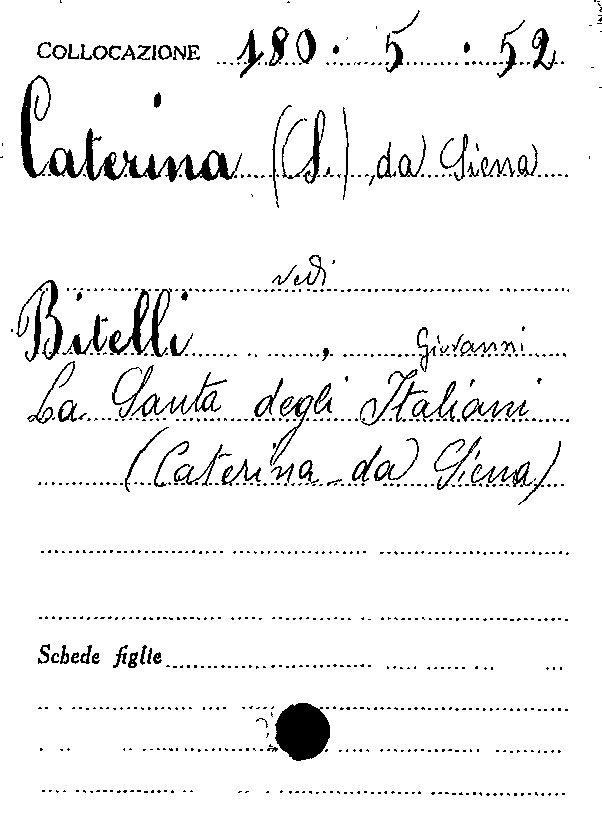 COLLOCAZIONE 180 · 5 · 52
Caterina (S.), da Siena
vedi
Bitelli, Giovanni
La Santa degli Italiani
(Caterina da Siena)
Schede figlie